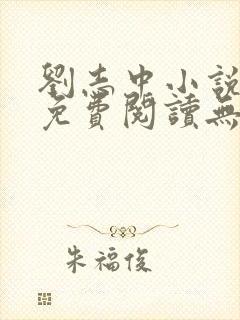 劉志中小說
免費閱讀無
朱福俊